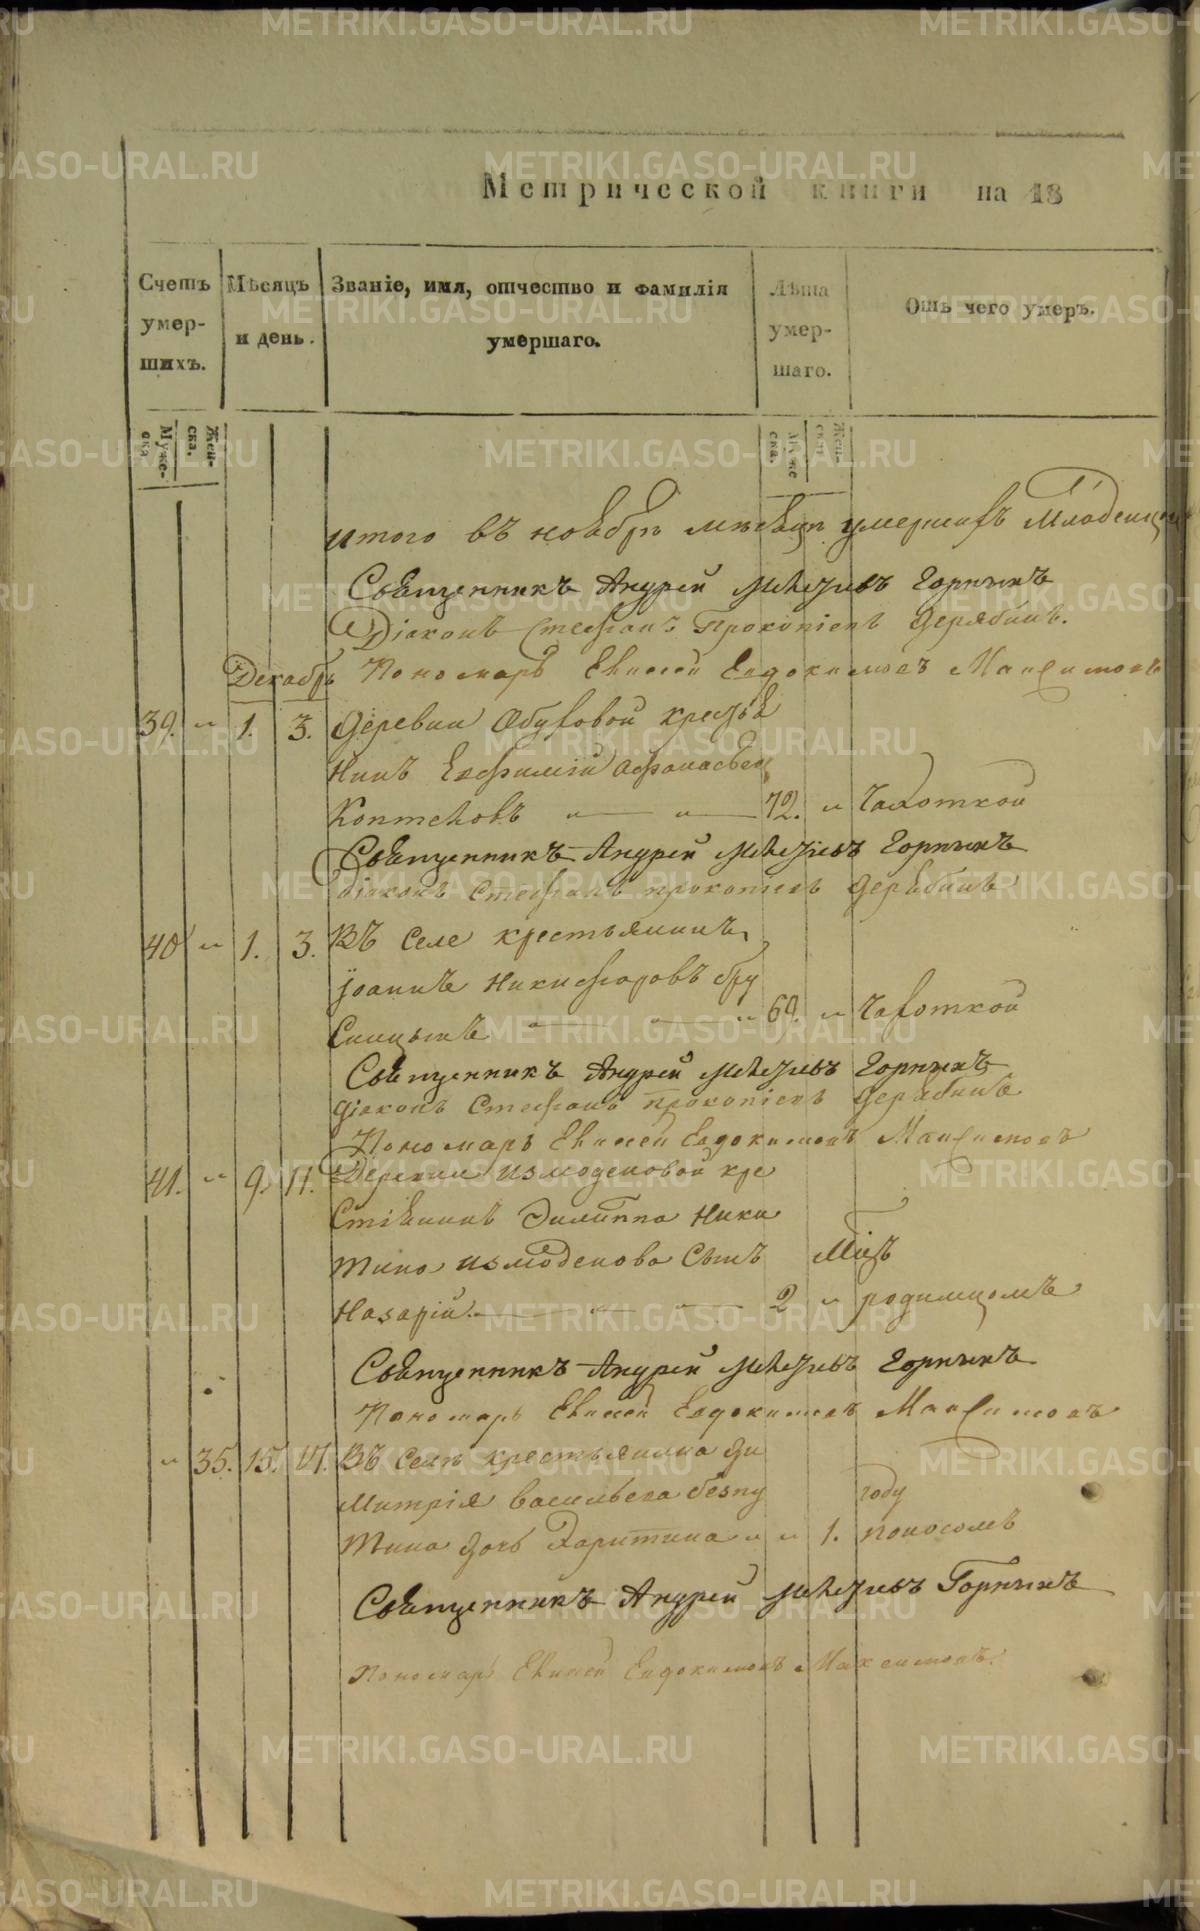 Метрической книги на 18
Счетъ умер-шихъ.
Мѣсяцъ и день.
Званіе, имя, отчество и фамилія умершаго.
Лѣта умер-шаго.
Отъ чего умеръ.
Муже-ска.
Жен-ска.
Муже-ска.
Жен-ска.
итого въ ноябрѣ мѣсяцѣ умершихъ Младенц
Священникъ Андрей Горныхъ
Діаконъ Стефанъ Прокопіевъ Дерябинъ.
Декабрь Пономарь Елисей Евдокимовъ Максимовъ
39. " 1. 3. Деревни Обуховой кресть
нинъ Евфимій Афанасьев
Коптеловъ " " 72. " Чахоткой
Священникъ Андрей Горныхъ
Діаконъ Стефанъ Прокопіевъ Дерябинъ
40 " 1. 3. Въ селе крестьянинъ
Іоаннъ Никифоровъ бру
сницынъ " " " 69. " Чахоткой
Священникъ Андрей Горныхъ
Діаконъ Стефанъ Прокопіевъ Дерябинъ
Пономарь Елисей Евдокимовъ Максимовъ
41. " 9. 11. Деревни Измоденовой кре
стьянинъ Филиппа Ники
тина Измоденова сынъ Мцъ
Назарій. " " 2 " родимцомъ
Священникъ Андрей Горныхъ
Пономарь Елисей Евдокимовъ Максимовъ
" 35. 15. 17. Въ селѣ крестьянина Ди
митрія Васильева безпу году
тина дочь Харитина " " 1. поносомъ
Священникъ Андрей Горныхъ
Пономарь Елисей Евдокимовъ Максимовъ.
METRIKI.GASO-URAL.RU